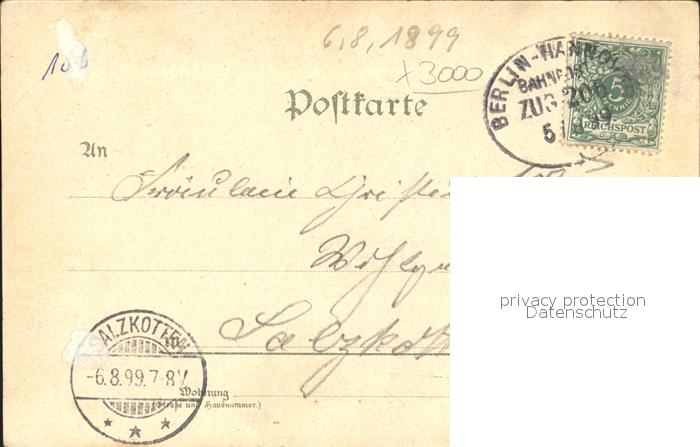 6.8.1899
100
x3000
Postkarte
BERLIN-HANNOV
BAHNPOST
ZUG 206
5
99
5
REICHSPOST
An
Fräulein
Salzkott
SALZKOTTEN
-6.8.99.7-8V.
Wohnung
(Straße und Hausnummer.)
privacy protection
Datenschutz